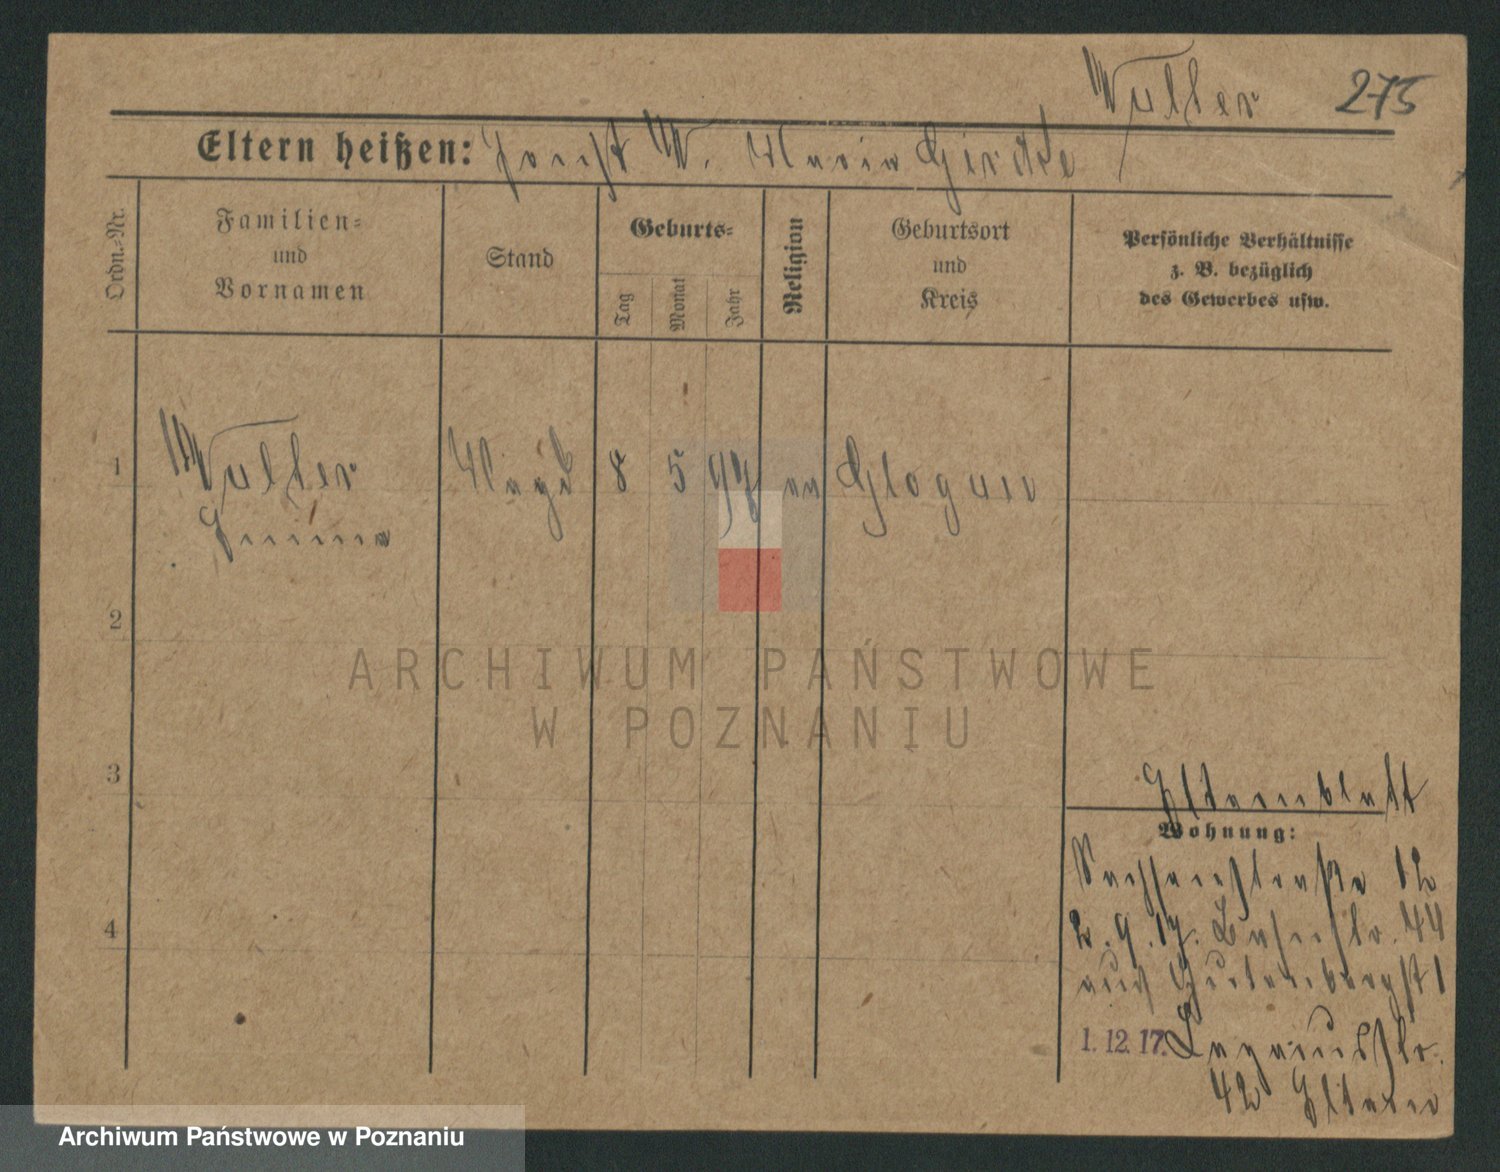 Walter 275
Eltern heißen: W. Maria
Ordn.-Nr.
Familien-
und
Vornamen
Stand
Geburts-
Tag
Monat
Jahr
Religion
Geburtsort
und
Kreis
Persönliche Verhältnisse
z. B. bezüglich
des Gewerbes usw.
1 Walter Magd 8 5 99 Glogau
2
3
4
Elternblatt
Wohnung:
12
2.9.17. 44
auch Gutenbergst 1
1.12.17.
42 Eltern
ARCHIWUM PAŃSTWOWE
W POZNANIU
Archiwum Państwowe w Poznaniu